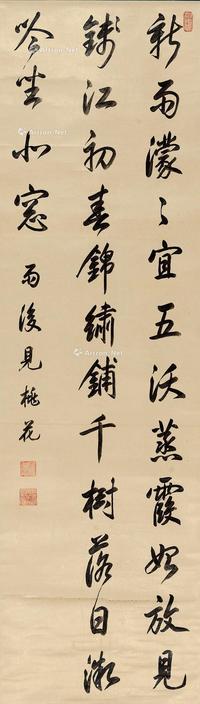 新雨濛〻宜五沃蒸霞始放見
錢江初春錦繡鋪千樹落日微
吟坐窓
雨後見桃花
Artron.Net